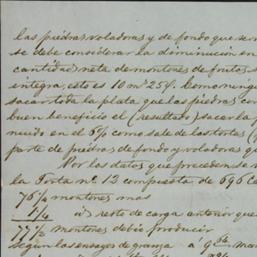 las piedras voladoras y de fondo que se
se debe considerar la diminución en
cantidad neta de montones de frutos
integra, esto es 10 m 25
sacar toda la plata que las piedras con
buen beneficio el (resultado) sacer la p
nuido en el 6% como sale de las tortas (
parte de piedras de fondo y voladoras q
Por los datos que preceden se
la Torta nº 12 compuesta de 696 Ca
76 montones mas
1 1/4 id resto de carga anterior que
77 montones debio producir
según los ensayes de granja a 9